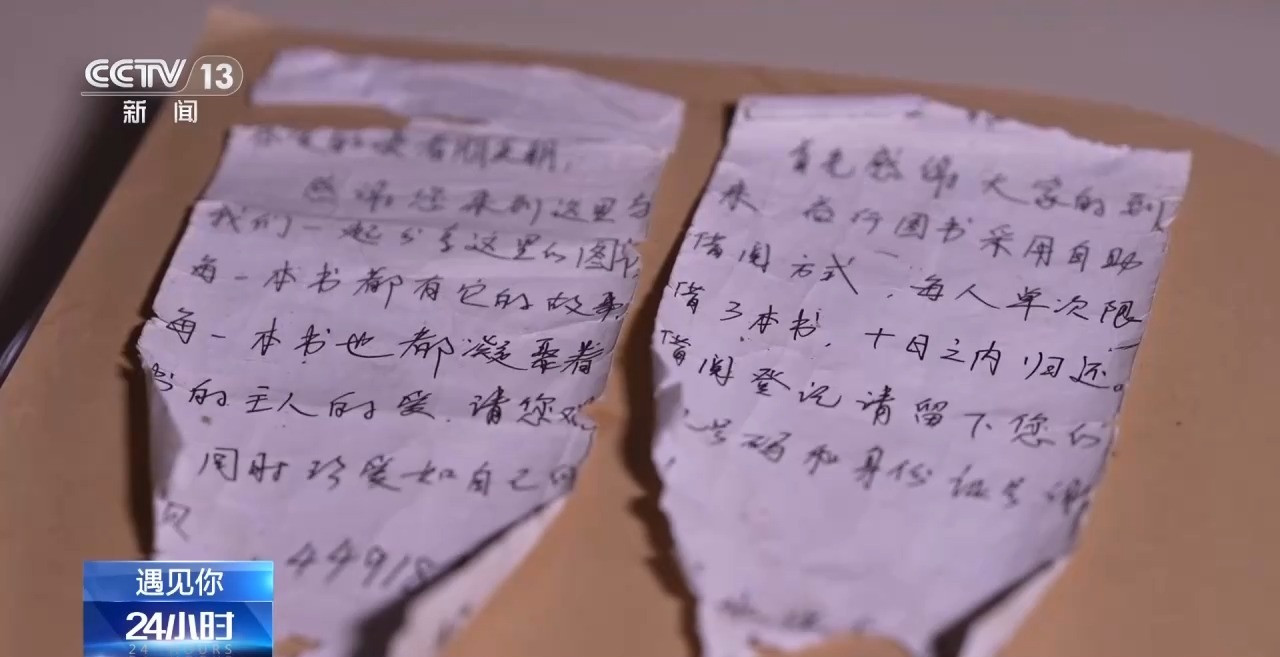 CCTV 13
新闻
感谢您来到这里与
我们一起分享这里的图书
每一本书都有它的故事
每一本书也都凝聚着
书的主人的爱.请您
阅时珍爱如自己的
44918
首先感谢大家的到
来 图书采用自助
借阅方式，每人单次限
借3本书，十日之内归还。
借阅登记请留下您的
号码和身份证号谢
遇见你
24小时
24 HOURS